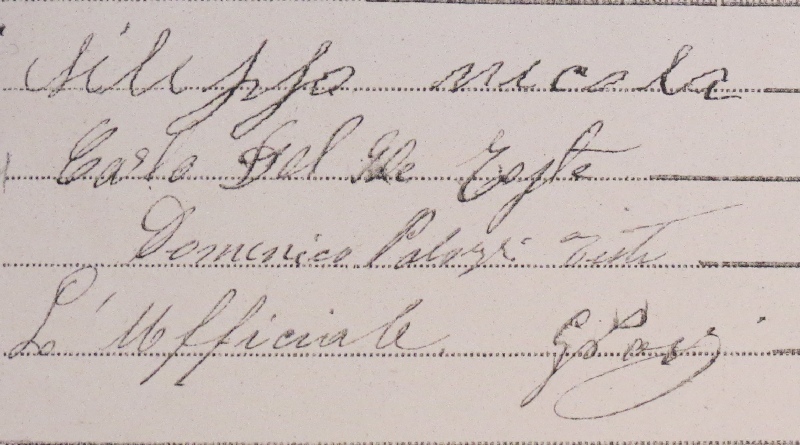 Filippo nicola
Carlo Del Re Teste
Domenico Palozzi Teste
L'Ufficiale